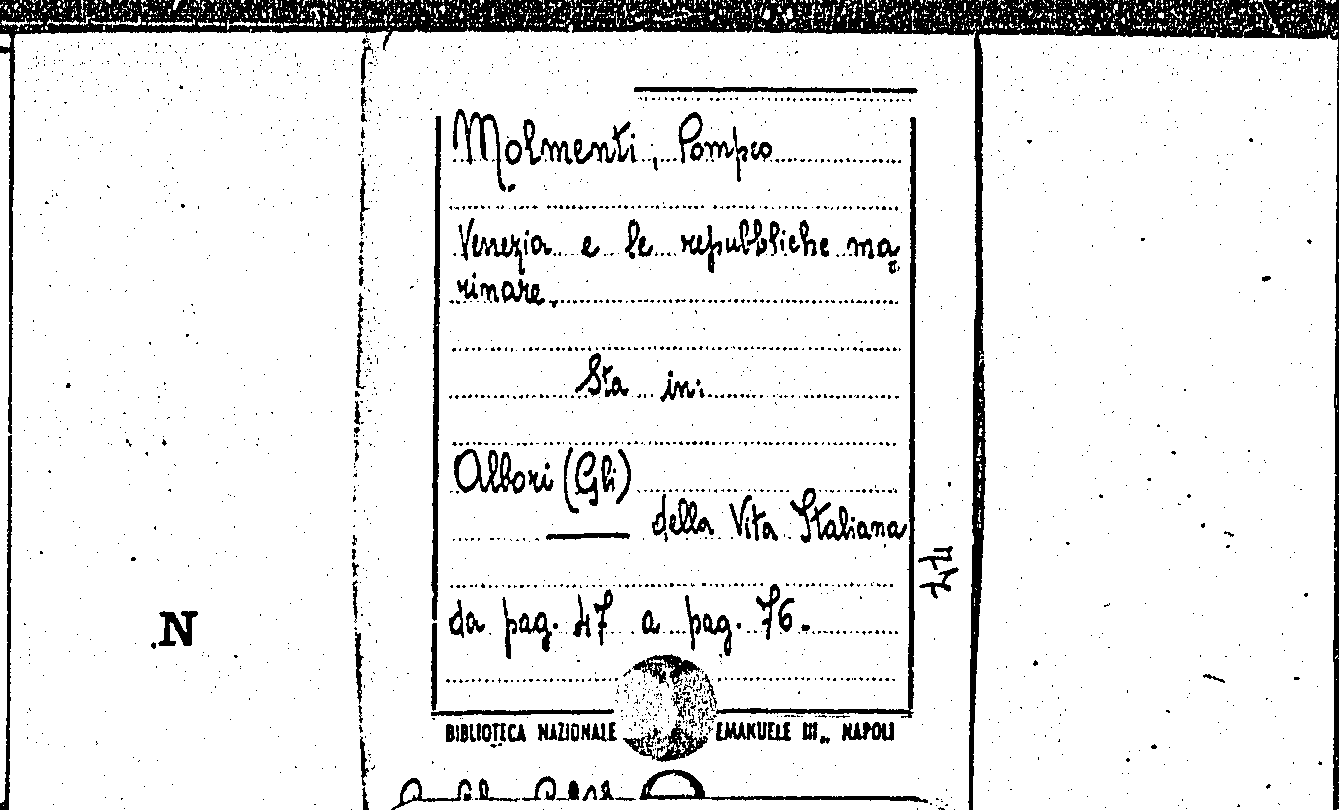 Molmenti, Pompeo
Venezia e le repubbliche ma
rinare.
Sta in:
Albori (Gli)
della Vita Italiana
da pag. 47 a pag. 76.
BIBLIOTECA NAZIONALE EMANUELE III„ NAPOLI
N